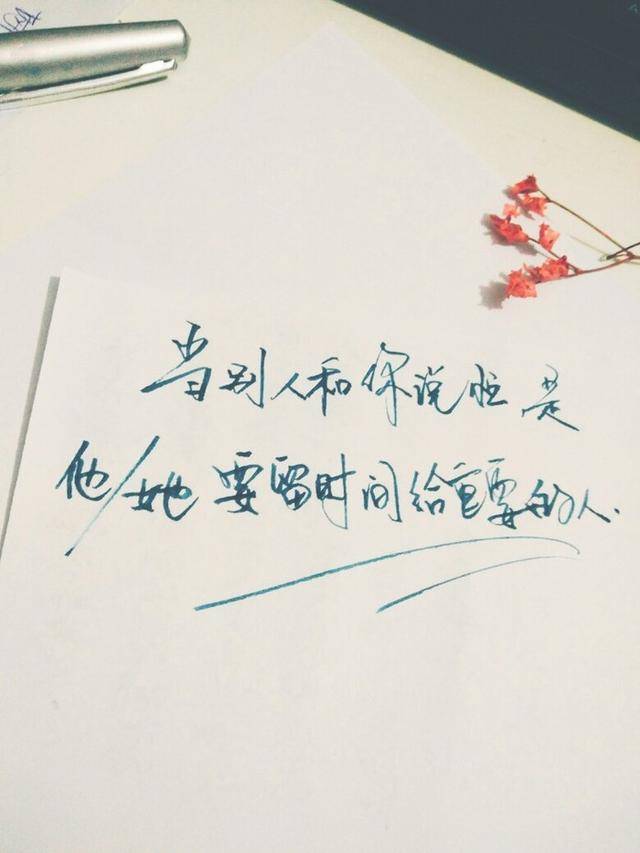 当别人和你说忙是
他/她要留时间给重要的人.